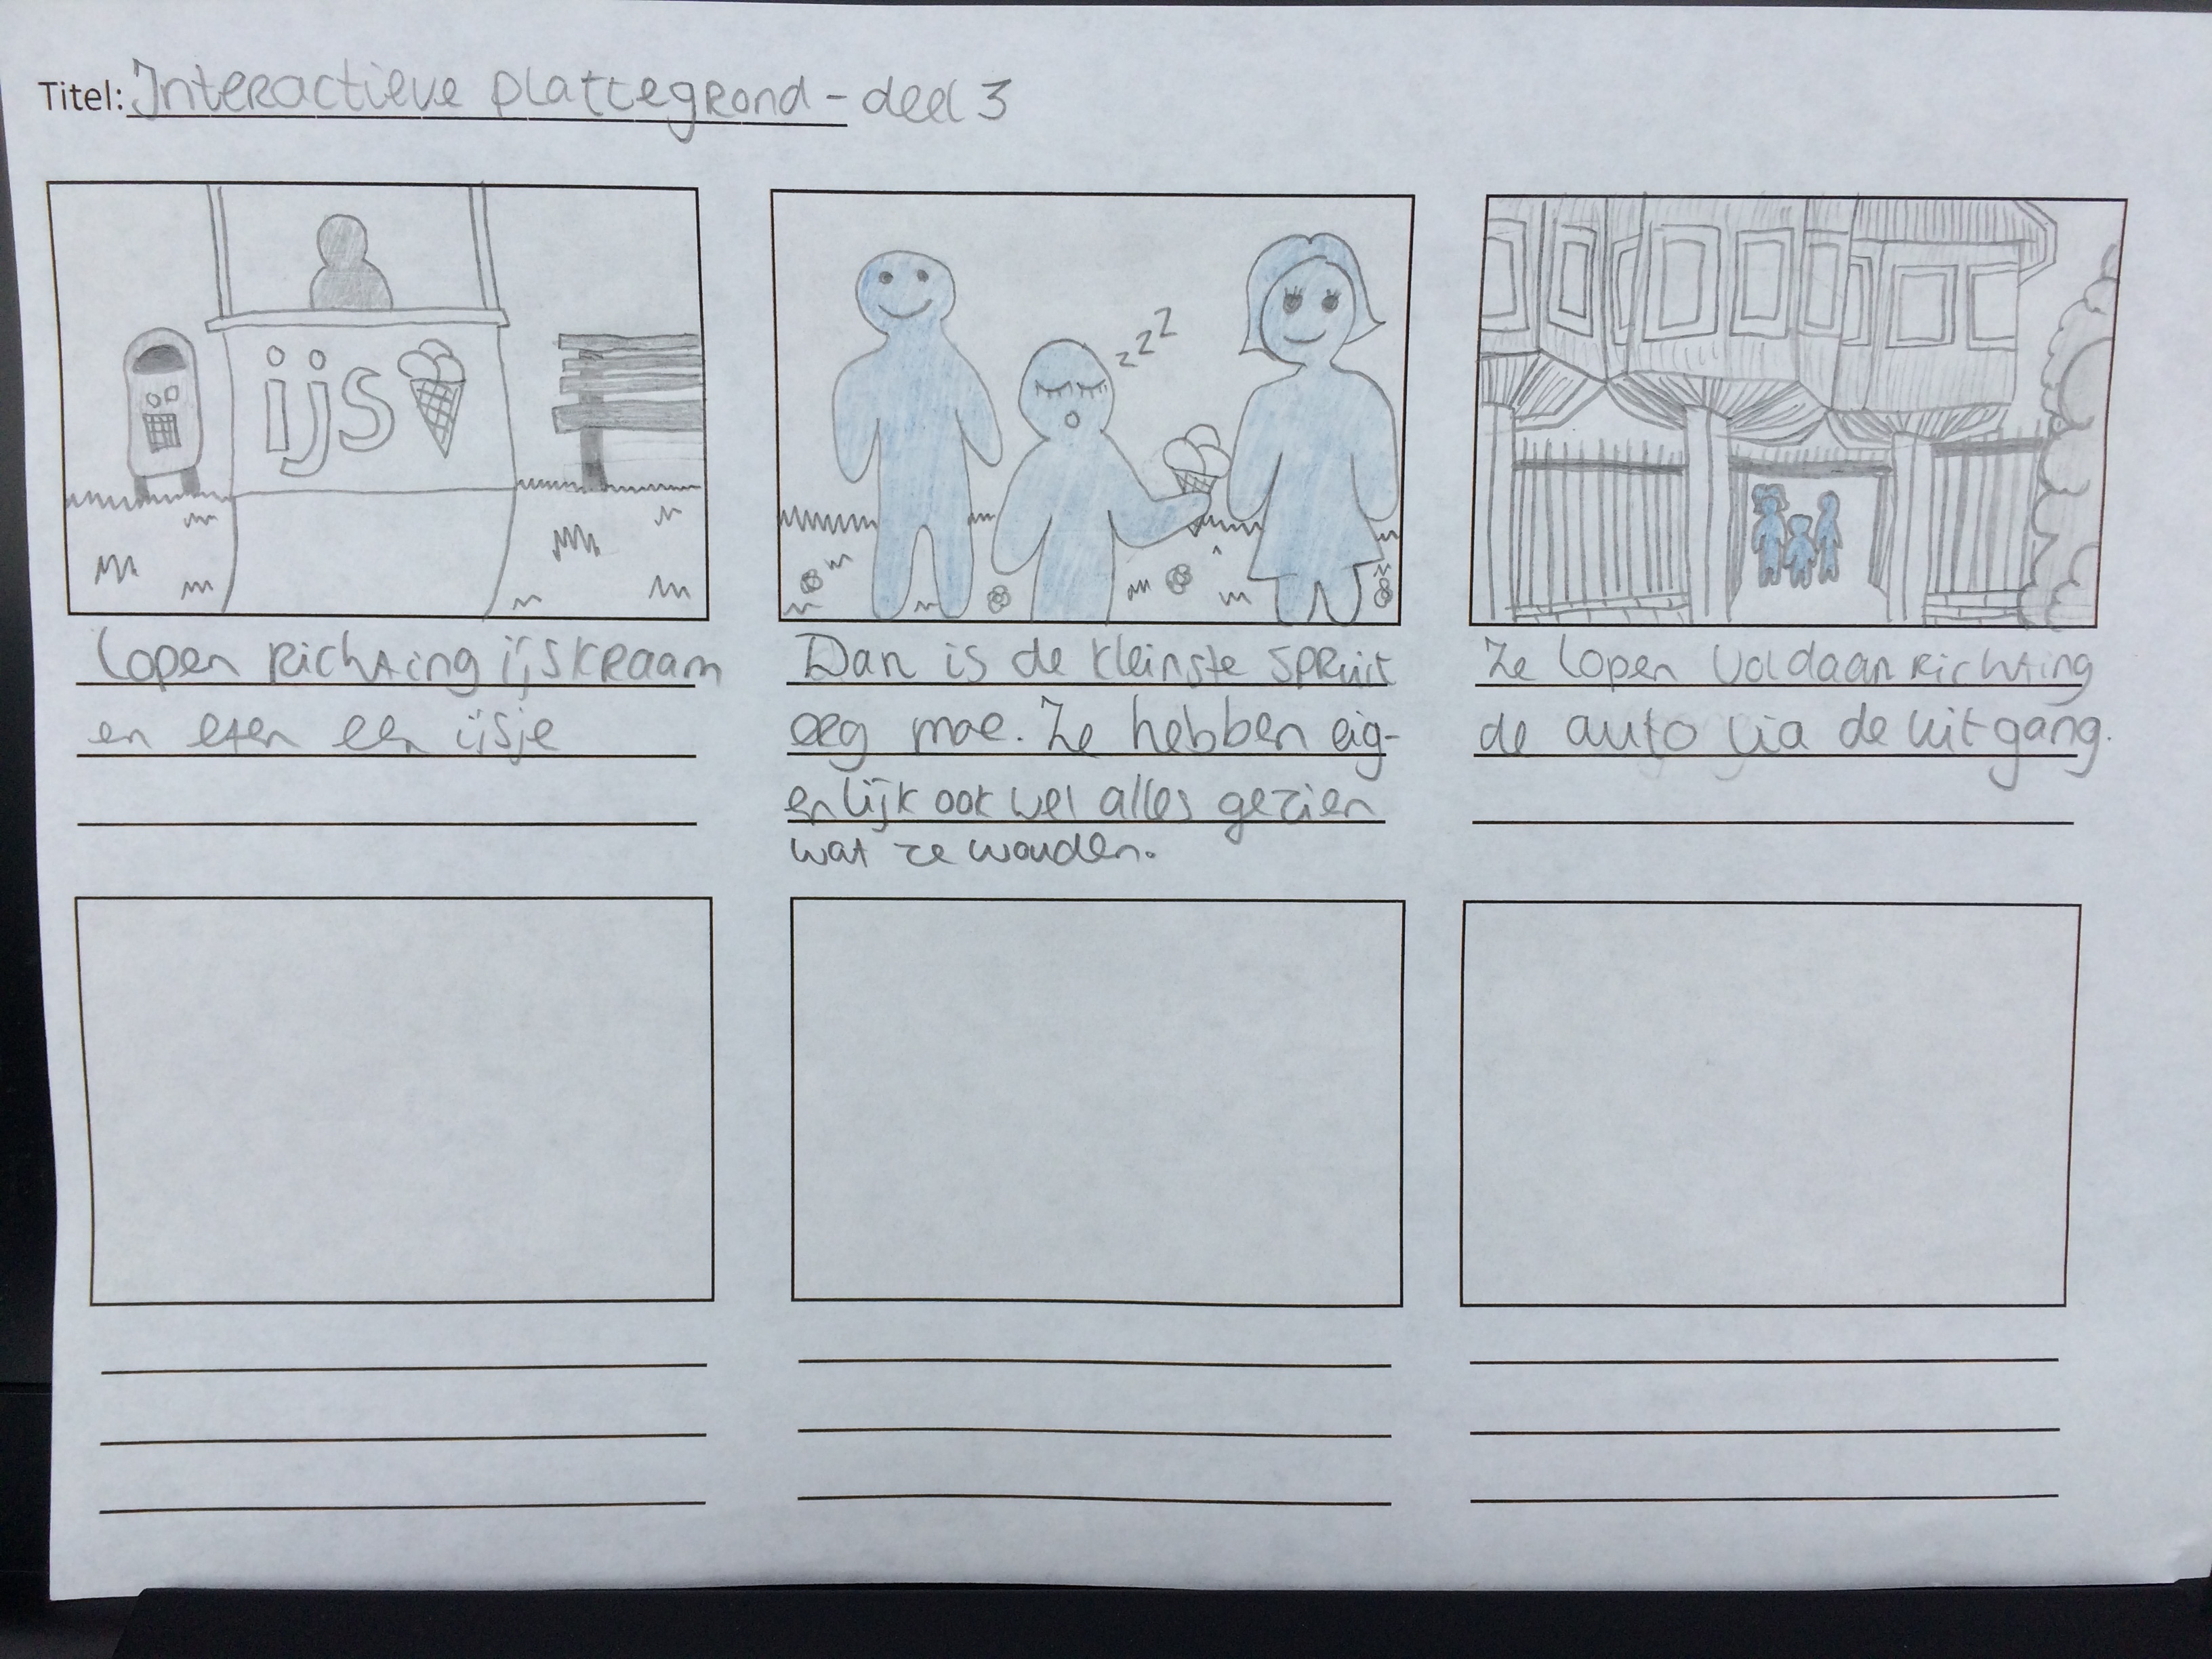 Titel: Interactieve plattegrond - deel 3
ijs
zzz
lopen richting ijskraam
en eten een ijsje
Dan is de kleinste spruit
erg moe. Ze hebben eig-
enlijk ook wel alles gezien
wat ze wouden.
Ze lopen voldaan richting
de auto via de uitgang.